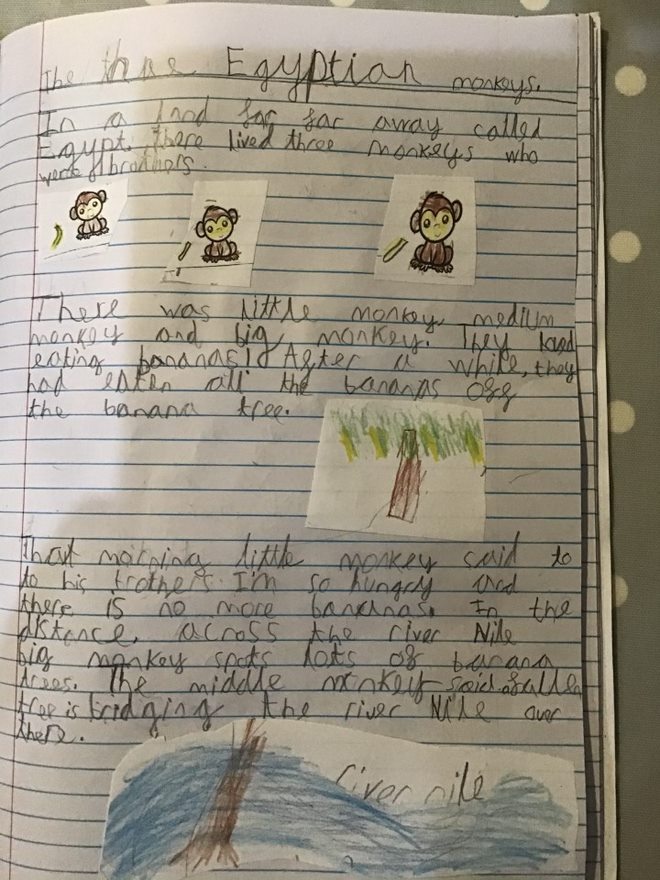 The three Egyptian monkeys.
In a land far far away called
Egypt. There lived three monkeys who
were brothers.
There was little monkey, medium
monkey and big monkey. They loved
eating bananas! After a while, they
had eaten all the bananas off
the banana tree.
That morning little monkey said to
to his brothers I'm so hungry and
there is no more bananas. In the
distance, across the river Nile
big monkey spots lots of banana
trees. The middle monkey said fallen
tree is bridging the river Nile over
there.
river nile